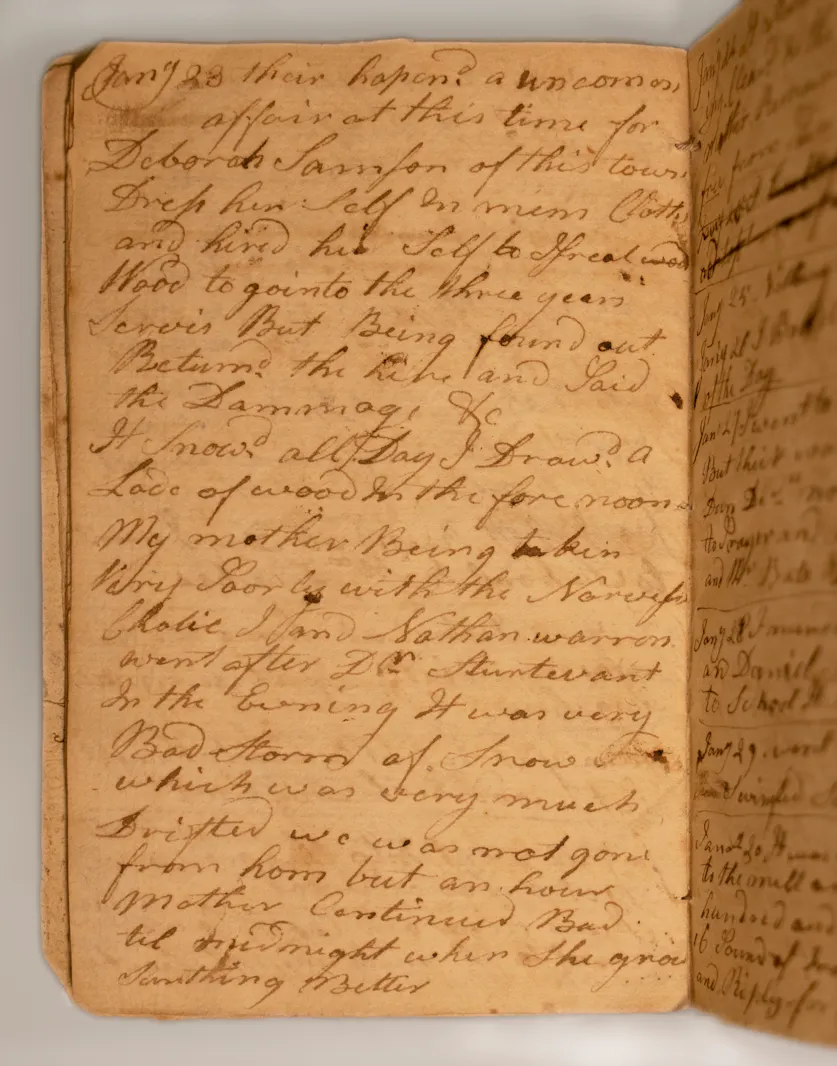 Janʸ 23 their hapenᵈ a uncomon
affair at this time for
Deborah Samson of this town
Dress her Self In mens Cloths
and hired his Self to Israel wood
Wood to go into the three years
Servis But Being found out
Returnᵈ the hire and Paid
the Dammage &c
It Snowᵈ all Day I Drawᵈ a
Lode of wood In the fore noon
My mother Being takin
Very Poorly with the Narvess
Cholic I and Nathan warron
went after Dʳ Sturtevant
In the Evening It was very
Bad Storm of Snow
which was very much
Drifted we was not gone
from hom but an hour
Mother Continued Bad
til midnight when She grow
Sumthing Better
Janʸ 25
of the Day
Janʸ 27 I went to
But their was
to Prayer and
and Mʳ
Janʸ 28
and Daniel
to School
Janʸ 29 went
It was
to the mill
hundred and
16 Pound of
and Riply for